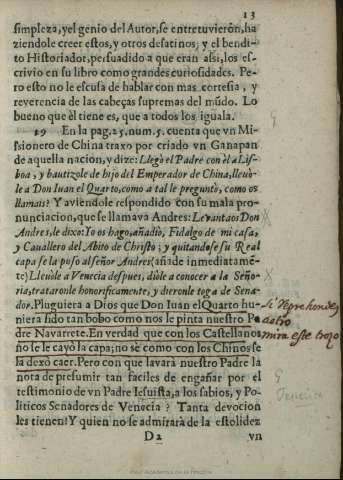 13
simpleza, y el genio del Autor, se entretuvieron, ha
ziendole creer estos, y otros desatinos, y el bendi-
to Historiador, persuadido a que eran assi, los es-
crivio en su libro como grandes curiosidades. Pe-
ro esto no le escusa de hablar con mas cortesia, y
reverencia de las cabeças supremas del mũdo. Lo
bueno que èl tiene es, que a todos los iguala.
29 En la pag. 25. num. 5. cuenta que vn Mi-
ssionero de China traxo por criado vn Ganapan
de aquella nacion, y dize: Llegò el Padre con èl a Lis-
boa, y bautizole de hijo del Emperador de China, lleuò-
le a Don Iuan el Quarto, como a tal le preguntò, como os
llamais? Y aviendole respondido con su mala pro-
nunciacion, que se llamava Andres: Levantaos Don
Andres, le dixo: Yo os hago, añadio, Fidalgo de mi casa,
y Cauallero del Abito de Christo; y quitandose su Real
capa se la puso al señor Andres (añade inmediatamẽ-
te) Lleuòle a Venecia despues, diòle a conocer a la Seño-
ria, trataronle honorificamente, y dieronle toga de Sena-
dor. Pluguiera a Dios que Don Iuan el Quarto hu-
niera sido tan bobo como nos le pinta nuestro Pa
dre Navarrete. En verdad que con los Castellanos
no se le cayò la capa; no sè como con los Chinos se
la dexò caer. Pero con que lavarà nuestro Padre la
nota de presumir tan faciles de engañar por el
testimonio de vn Padre Iesuista, a los sabios, y Po-
liticos Senadores de Venecia? Tanta devocion
les tienen? Y quien no se admirarà de la estolidez
D2 vn
mira este trozo
Real Academia de la Historia